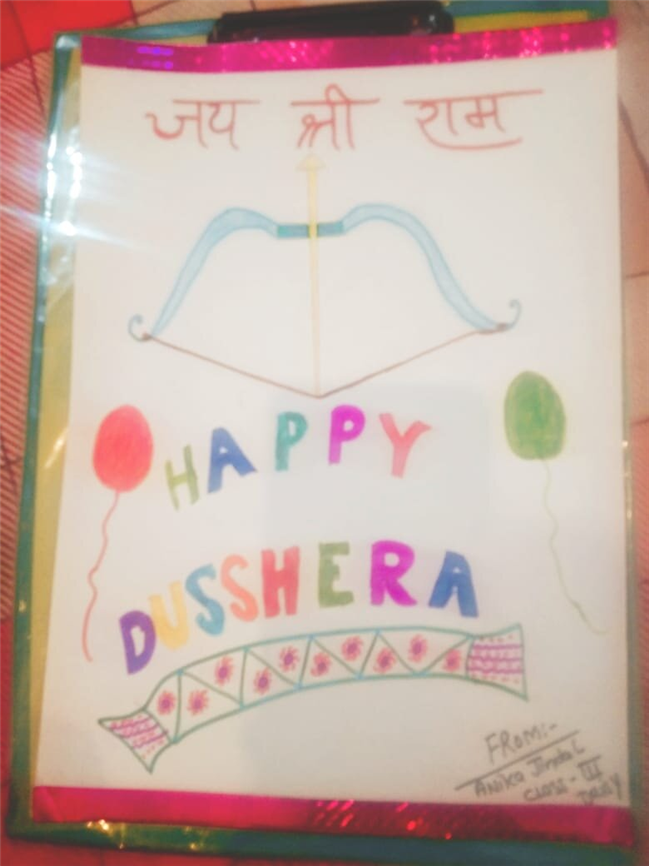 जय श्री राम
HAPPY
DUSSHERA
FROM:-
Anika Jindal
CLASS - III
DAISY